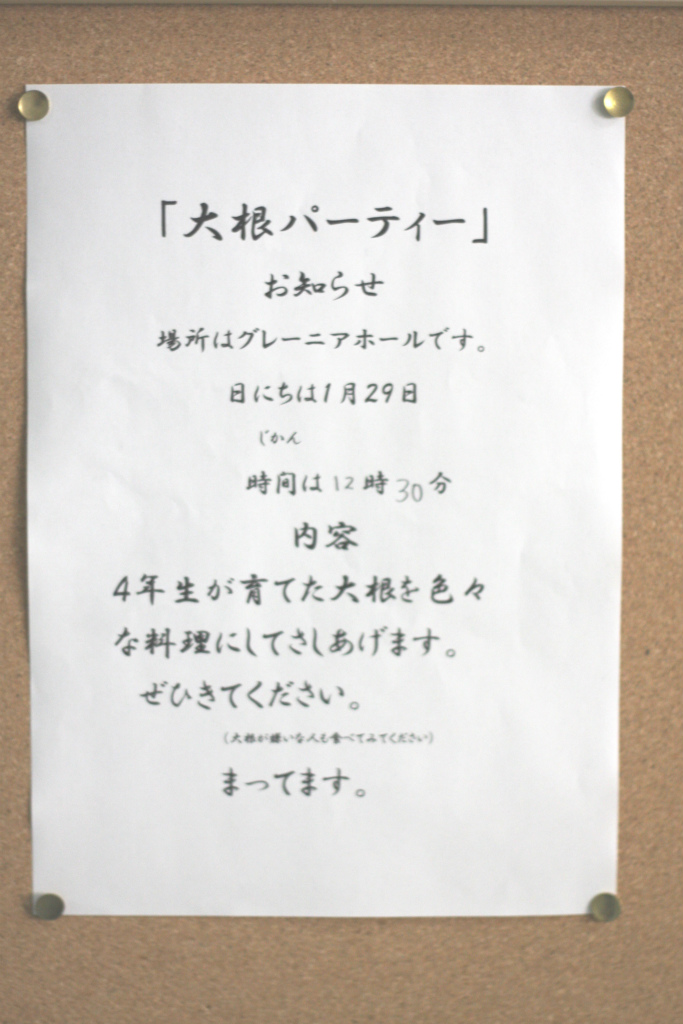 「大根パーティー」
お知らせ
場所はグレーニアホールです。
日にちは1月29日
じかん
時間は12時30分
内容
4年生が育てた大根を色々
な料理にしてさしあげます。
ぜひきてください。
(大根が嫌いな人も食べてみてください)
まってます。